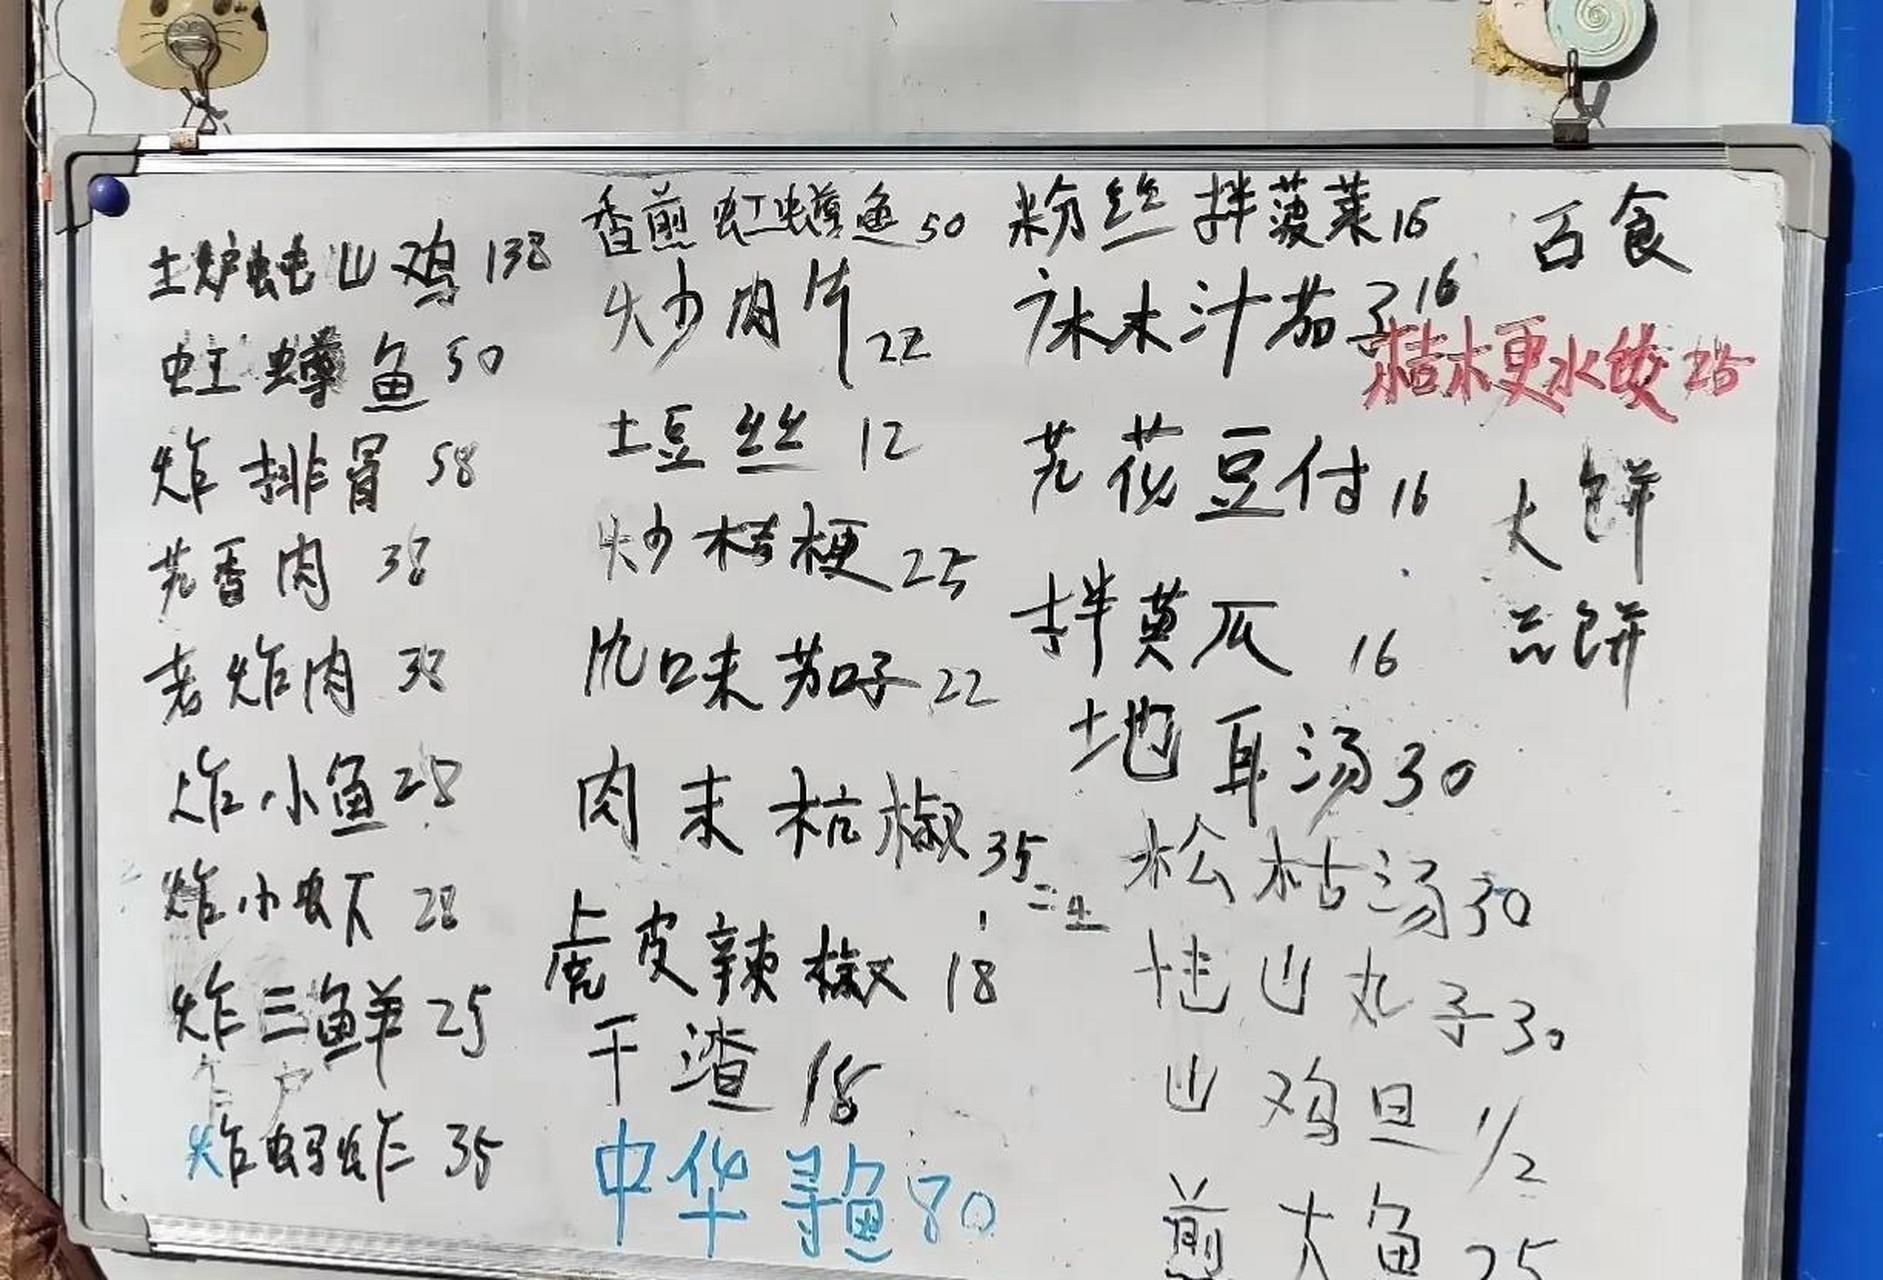 土炉炖山鸡 138
虹鳟鱼 50
炸排骨 58
芫香肉 38
老炸肉 38
炸小鱼 28
炸小虾 28
炸三鲜 25
炸蚂蚱 35
香煎虹鳟鱼 50
炒肉片 22
土豆丝 12
炒桔梗 25
风味茄子 22
肉末杭椒 35
虎皮辣椒 18
干渣 18
中华寻鱼 80
粉丝拌菠菜 16
麻汁茄子 16
芫花豆付 16
拌黄瓜 16
地耳汤 30
松枯汤 30
山丸子 30
山鸡旦 1/2
煎大鱼 25
面食
桔梗水饺 25
大饼